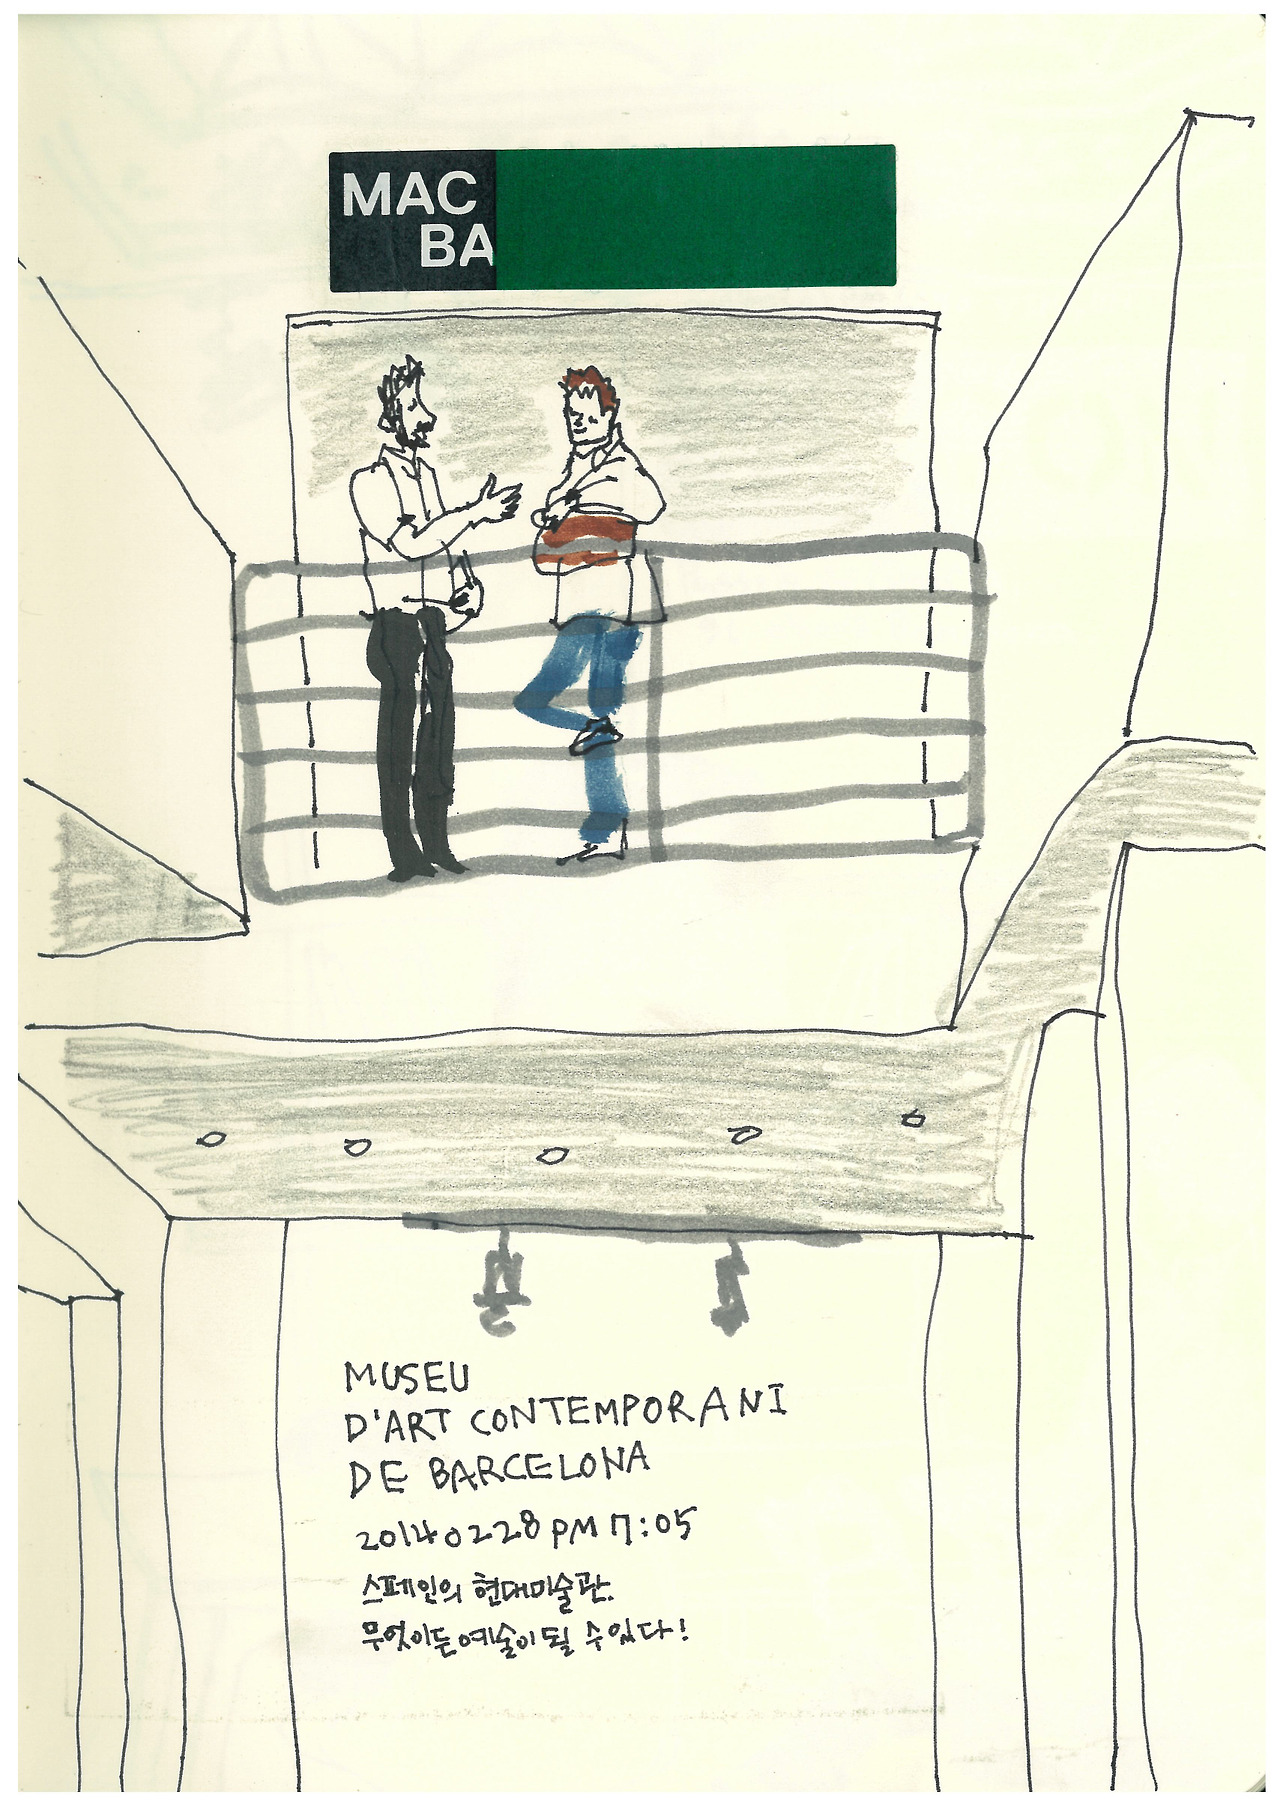 MAC
BA
MUSEU
D'ART CONTEMPORANI
DE BARCELONA
20140228 PM 7:05
스페인의 현대미술관.
무엇이든 예술이 될 수 있다!